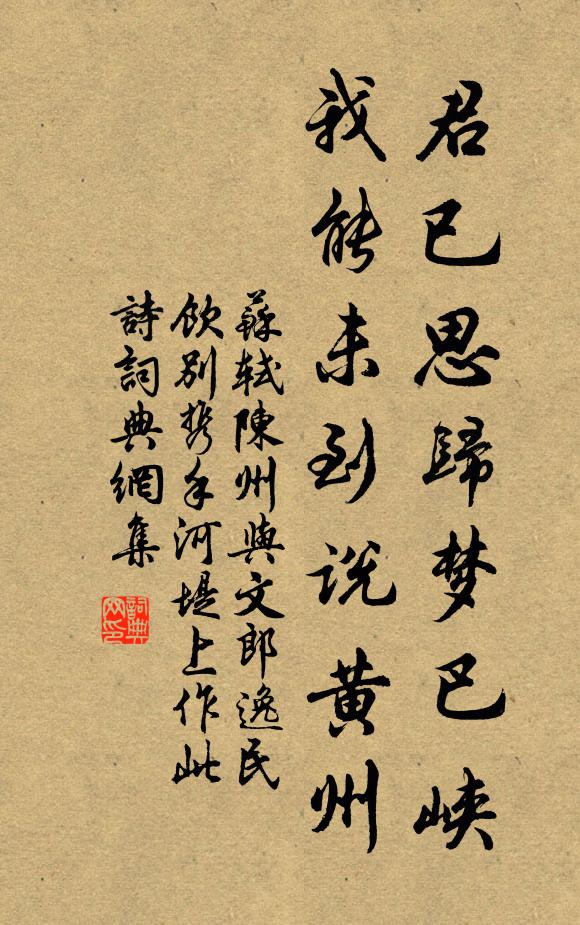 君已思歸梦巴峽
我能未到说黄州
蘇軾陳州與文郎逸民
飲别携手河堤上作此
詩詞典網集
詞典
网印